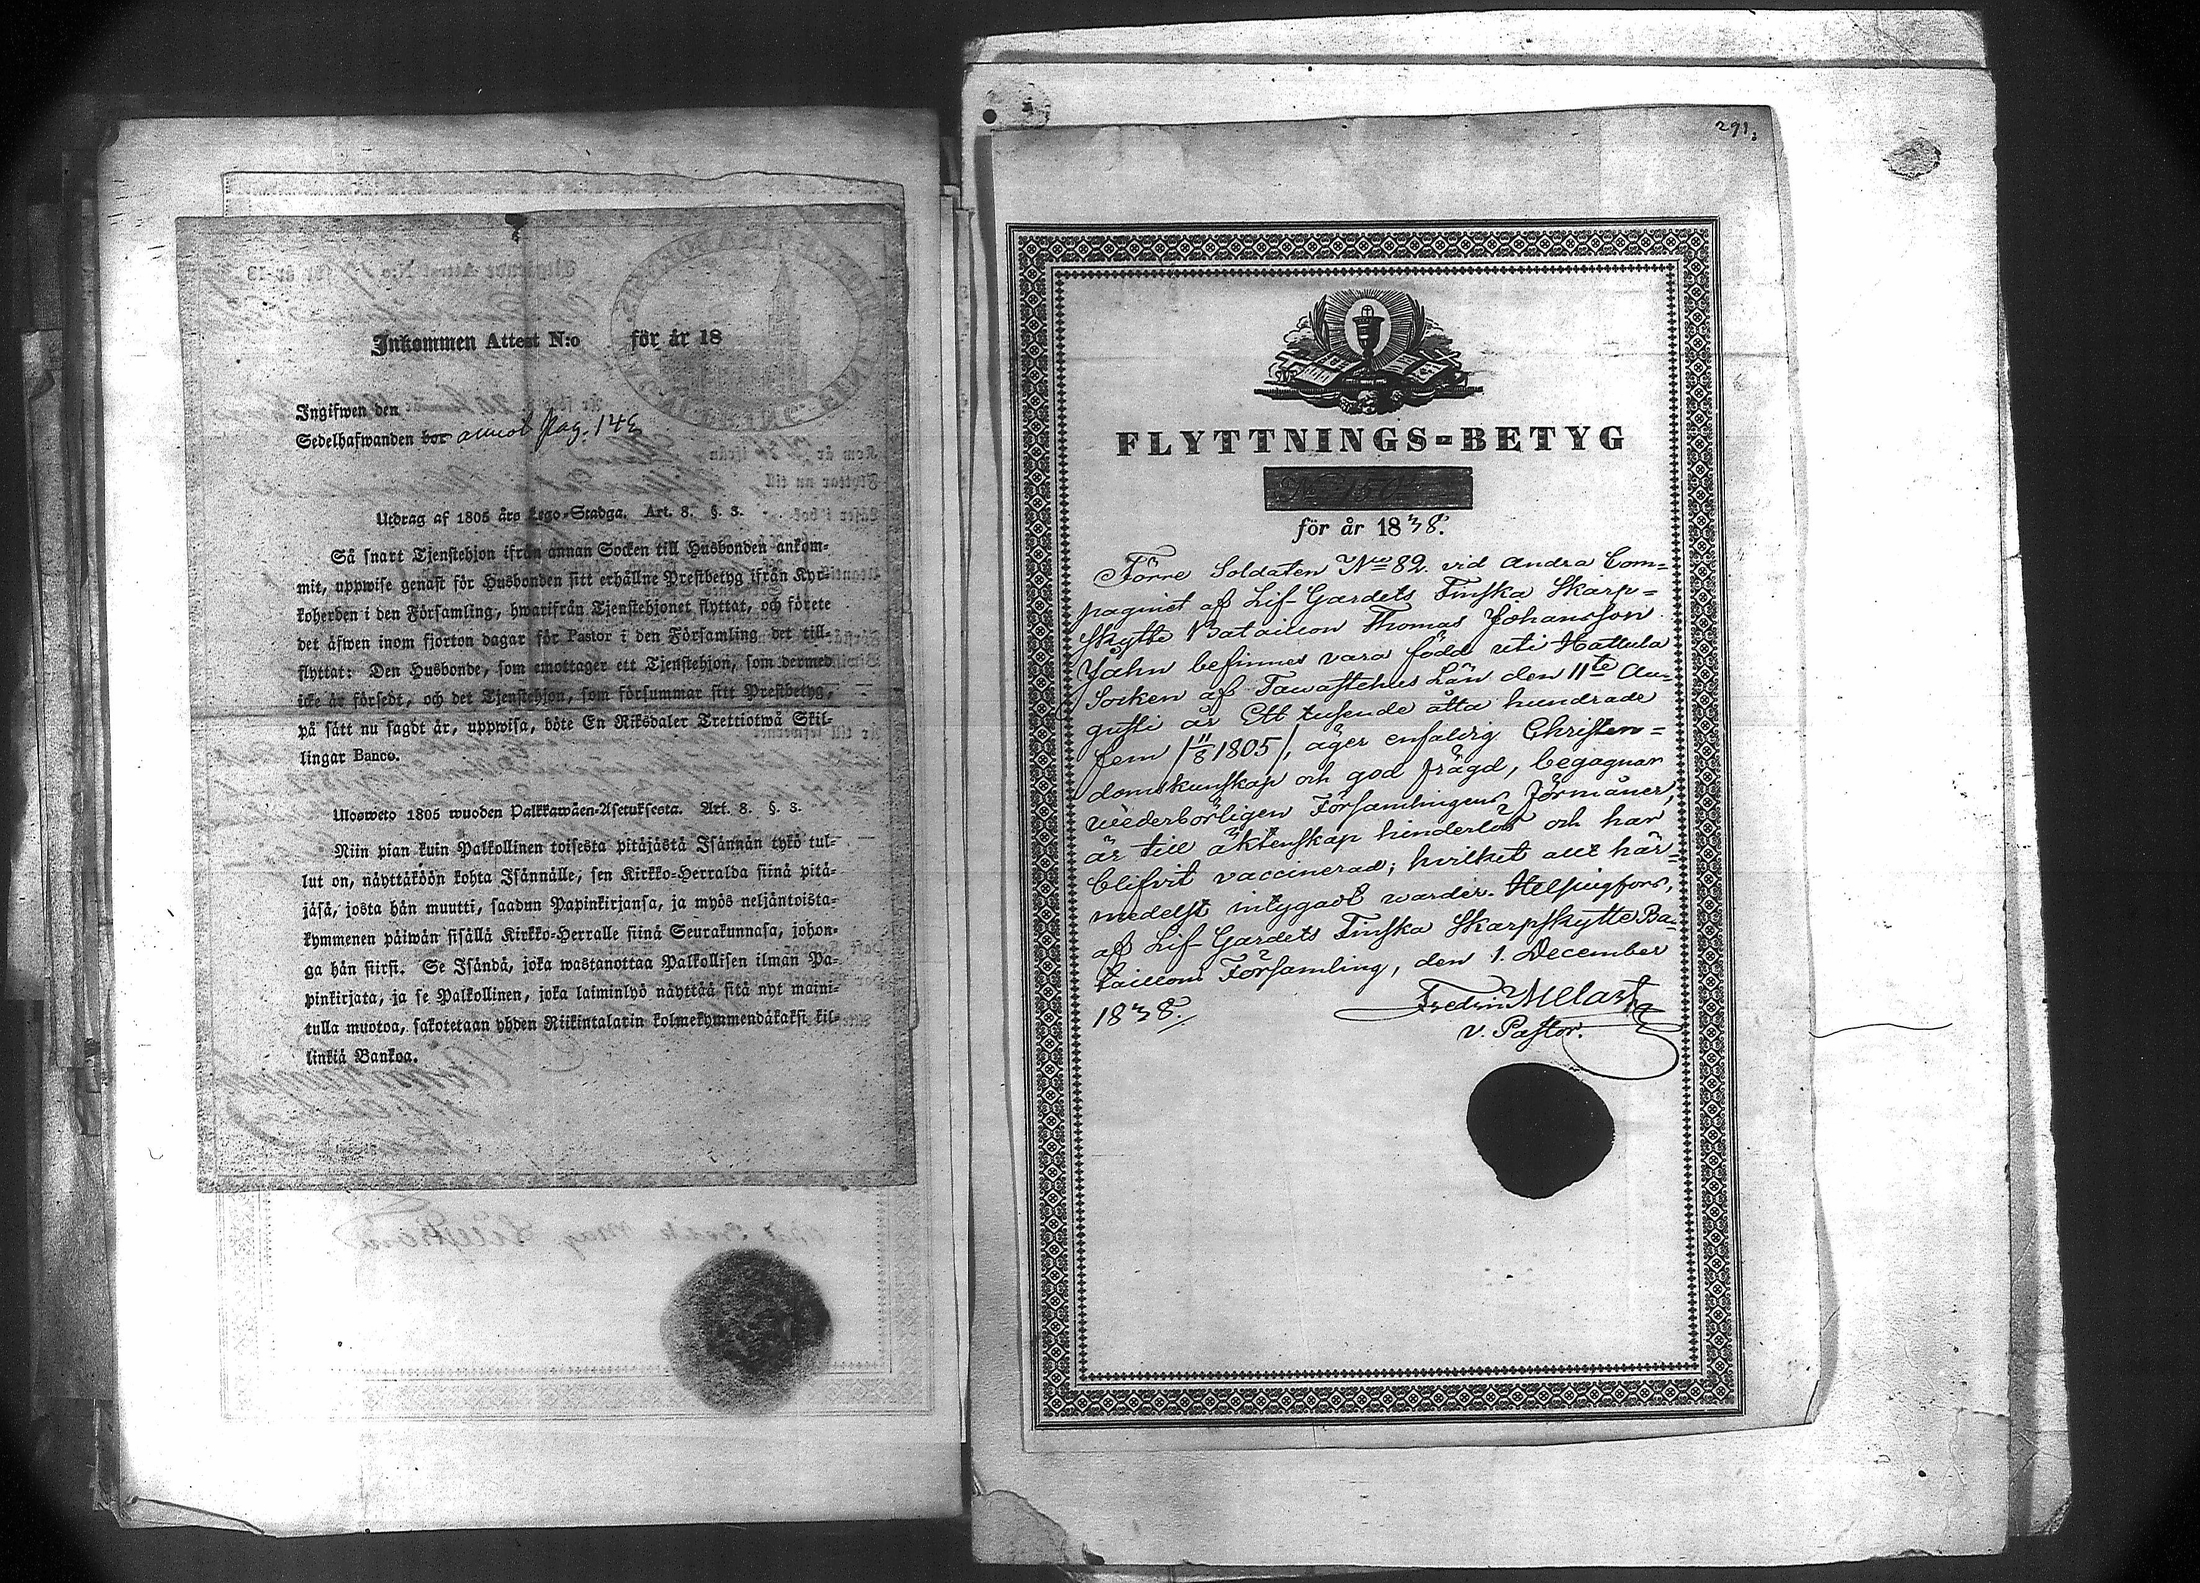 Inkommen Attest N:o för år 18
Ingifwen den
Sedelhafwanden bor pag. 145
Utdrag af 1805 års Lego-Stadga. Art. 8. §. 3.
Så snart Tjenstehjon ifrån annan Socken till Husbonden ankom-
mit, uppwise genast för Husbonden sitt erhållne Prestbetyg ifrån Kyr-
koherden i den Församling, hwarifrån Tjenstehjonet flyttat, och förete
det äfwen inom fjorton dagar för Pastor i den Församling det till-
flyttat: Den Husbonde, som emottager ett Tjenstehjon, som dermed
icke är försedt, och det Tjenstehjon, som försummar sitt Prestbetyg,
på sätt nu sagdt är, uppwisa, böte En Riksdaler Trettiotwå Skil-
lingar Banco.
Ulosweto 1805 wuoden Palkkawäen-Asetuksesta. Art. 8. §. 3.
Niin pian kuin Palkollinen toisesta pitäjästä Isännän tykö tul-
lut on, näyttäköön kohta Isännälle, sen Kirkko-Herralda siinä pitä-
jäsä, josta hän muutti, saadun Papinkirjansa, ja myös neljäntoista-
kymmenen päiwän sisällä Kirkko-Herralle siinä Seurakunnasa, johon-
ga hän siirsi. Se Isändä, joka wastanottaa Palkollisen ilman Pa-
pinkirjata, ja se Palkollinen, joka laiminlyö näyttää sitä nyt maini-
tulla muotoa, sakotetaan yhden Riikintalarin kolmekymmendäkaksi kil-
linkiä Bankoa.
291.
FLYTTNINGS-BETYG
No 150
för år 1838.
Förre Soldaten No 82. vid Andra Com-
pagniet af Lif-Gardets Finska Skarp-
skytte Bataillon Thomas Johansson
Jähn befinnes vara född uti Hattula
Socken af Tawastehus Län den 11te Au-
gusti år Ett tusende åtta hundrade
fem /11/8 1805/, äger enfaldig Christen-
domskunskap och god frägd, begagnar
wederbörligen Församlingens förmåner,
är till äktenskap hinderlös och har
blifvit vaccinerad; hvilket allt här-
medelst intygadt warder. Helsingfors,
af Lif-Gardets Finska Skarpskytte Ba-
taillons Församling, den 1. December
1838.
Fredrik Melart
v. Pastor.